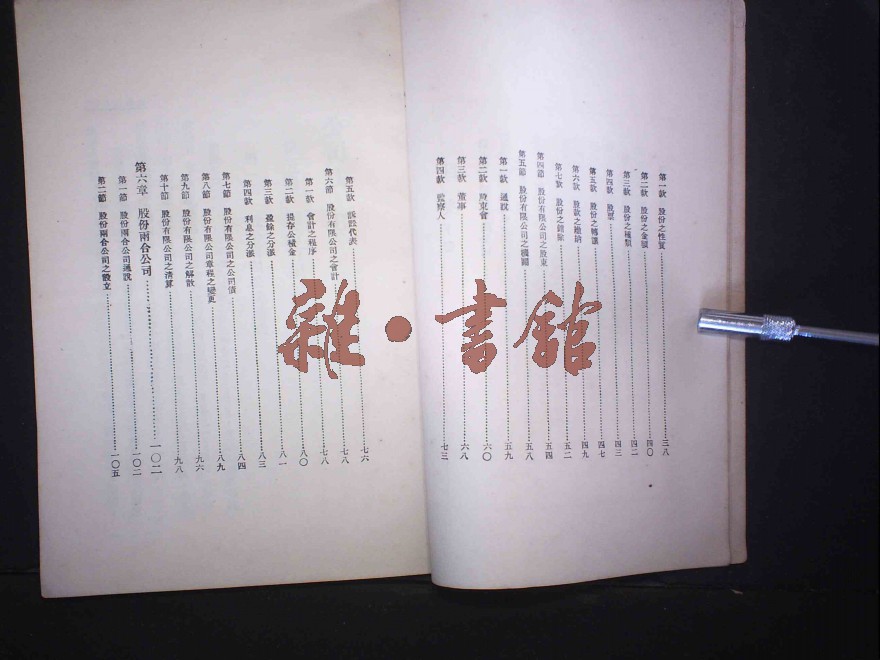 第一款 股份之性質 三八
第二款 股份之金額 四〇
第三款 股份之種類 四二
第四款 股票 四三
第五款 股份之轉讓 四七
第六款 股款之繳納 四九
第七款 股份之銷除 五二
第四節 股份有限公司之股東 五四
第五節 股份有限公司之機關 五八
第一款 通說 五九
第二款 股東會 六〇
第三款 董事 六八
第四款 監察人 七三
第五款 訴訟代表 七六
第六節 股份有限公司之會計 七八
第一款 會計之程序 七八
第二款 提存公積金 八〇
第三款 盈餘之分派 八一
第四款 利息之分派 八三
第七節 股份有限公司之公司債 八四
第八節 股份有限公司章程之變更 八九
第九節 股份有限公司之解散 九六
第十節 股份有限公司之清算 九八
第六章 股份兩合公司 一〇二
第一節 股份兩合公司通說 一〇二
第二節 股份兩合公司之設立 一〇五
雜·書館